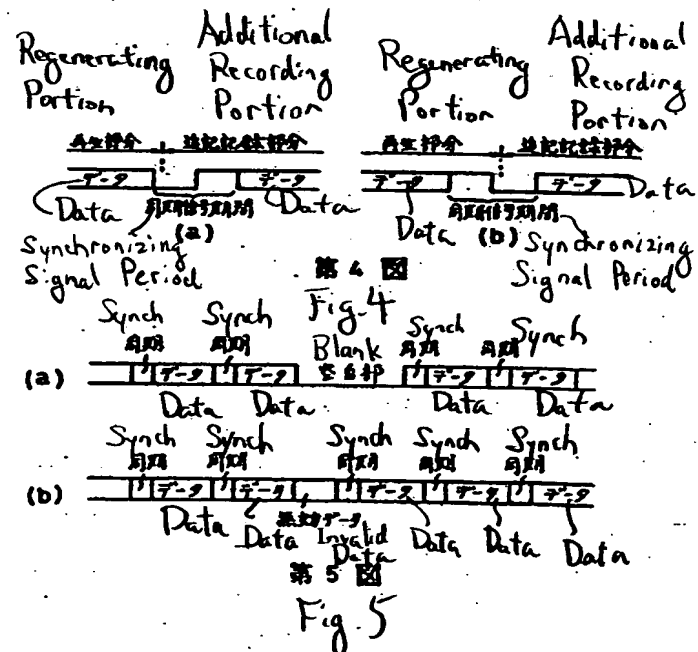 Regenerating Portion
Additional Recording Portion
Regenerating Portion
Additional Recording Portion
再生部分 追記記録部分 再生部分 追記記録部分
データ データ データ データ
Data Data Data Data
同期信号期間 同期信号期間
(a) (b)
Synchronizing Signal Period
Synchronizing Signal Period
第4図
Fig.4
Synch Synch Blank Synch Synch
同期 同期 空白部 同期 同期
(a) データ データ データ データ
Data Data Data Data
Synch Synch Synch Synch Synch
同期 同期 同期 同期 同期
(b) データ データ データ データ データ
Data Data Data Data Data
無効データ
Invalid Data
第5図
Fig.5